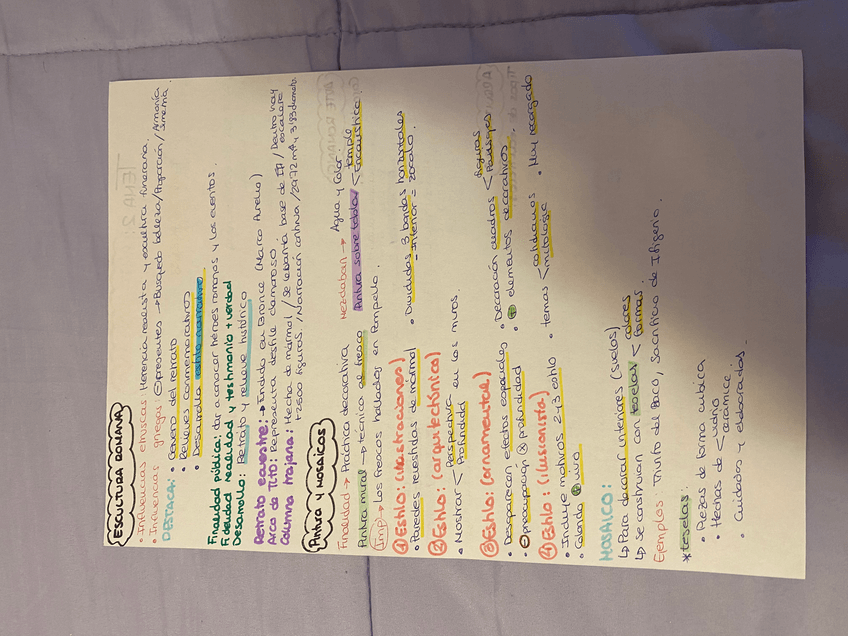 ESCULTURA ROMANA
• Influencias etruscas Herencia realista y escultura funeraria.
• Influencias griegas ⊖ presentes → Búsqueda belleza/Proporción/Armonía Simetría
DESTACAN: • Género del retrato
• Relieves conmemorativos
• Desarrolla estilo narrativo
Finalidad pública: da a conocer héroes romanos y los eventos.
Fidelidad realidad y testimonio + verdad
Desarrollo: Retrato y relieve histórico
Retrato ecuestre: → Fundido en Bronce (Marco Aurelio)
Arco de TITO: Representa desfile clamoroso.
Columna trajana: Hecha de mármol / se levanta base de / Dentro hay escalera
+2500 figuras. / Narración continua /
Pintura y mosaicos
Finalidad → Práctica decorativa Mezclaban → Agua y Color.
Pintura mural → técnica al fresco Pintura sobre tabla < temple Encaústica
Imp → Los frescos hallados en Pompello.
① Estilo: (incrustaciones)
• Paredes revestidas de mármol • Divididas 3 bandas horizontales
- Inferior = zócalo.
② Estilo: (arquitectónica)
• Mostrar < Perspectiva Profundidad en los muros.
③ Estilo: (ornamental)
• Desaparecen efectos espaciales • Decoración cuadros < figuras Paisajes
• ⊖ preocupación x profundidad • ⊕ elementos decorativos.
④ Estilo: (ilusionista)
• Incluye motivos 2 y 3 estilo • temas < cotidianos mitología • Muy recargado
• Colorido ⊕ vivo
MOSAICO:
↳ Para decorar interiores (suelos)
↳ Se construían con teselas < colores formas.
Ejemplos: Triunfo del Baco, Sacrificio de Ifigenio.
* teselas:
• Piezas de forma cúbica
• Hechas de < vidrio cerámica
• Cuidados y elaborados.